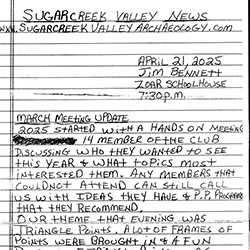 SUGARCREEK VALLEY NEWS
www.SUGARCREEKVALLEYARCHAEOLOGY.COM
APRIL 21, 2025
JIM BENNETT
ZOAR SCHOOLHOUSE
7:30 P.M.
MARCH MEETING UPDATE
2025 STARTED WITH A HANDS ON MEETING
14 MEMBER OF THE CLUB
DISCUSSING WHO THEY WANTED TO SEE
THIS YEAR & WHAT TOPICS MOST
INTERESTED THEM. ANY MEMBERS THAT
COULDNOT ATTEND CAN STILL CALL
US WITH IDEAS THEY HAVE & P.P. PROGRAM
THAT THEY RECOMMEND.
OUR THEME THAT EVENING WAS
TRIANGLE POINTS. A LOT OF FRAMES OF
POINTS WERE BROUGHT IN & A FUN